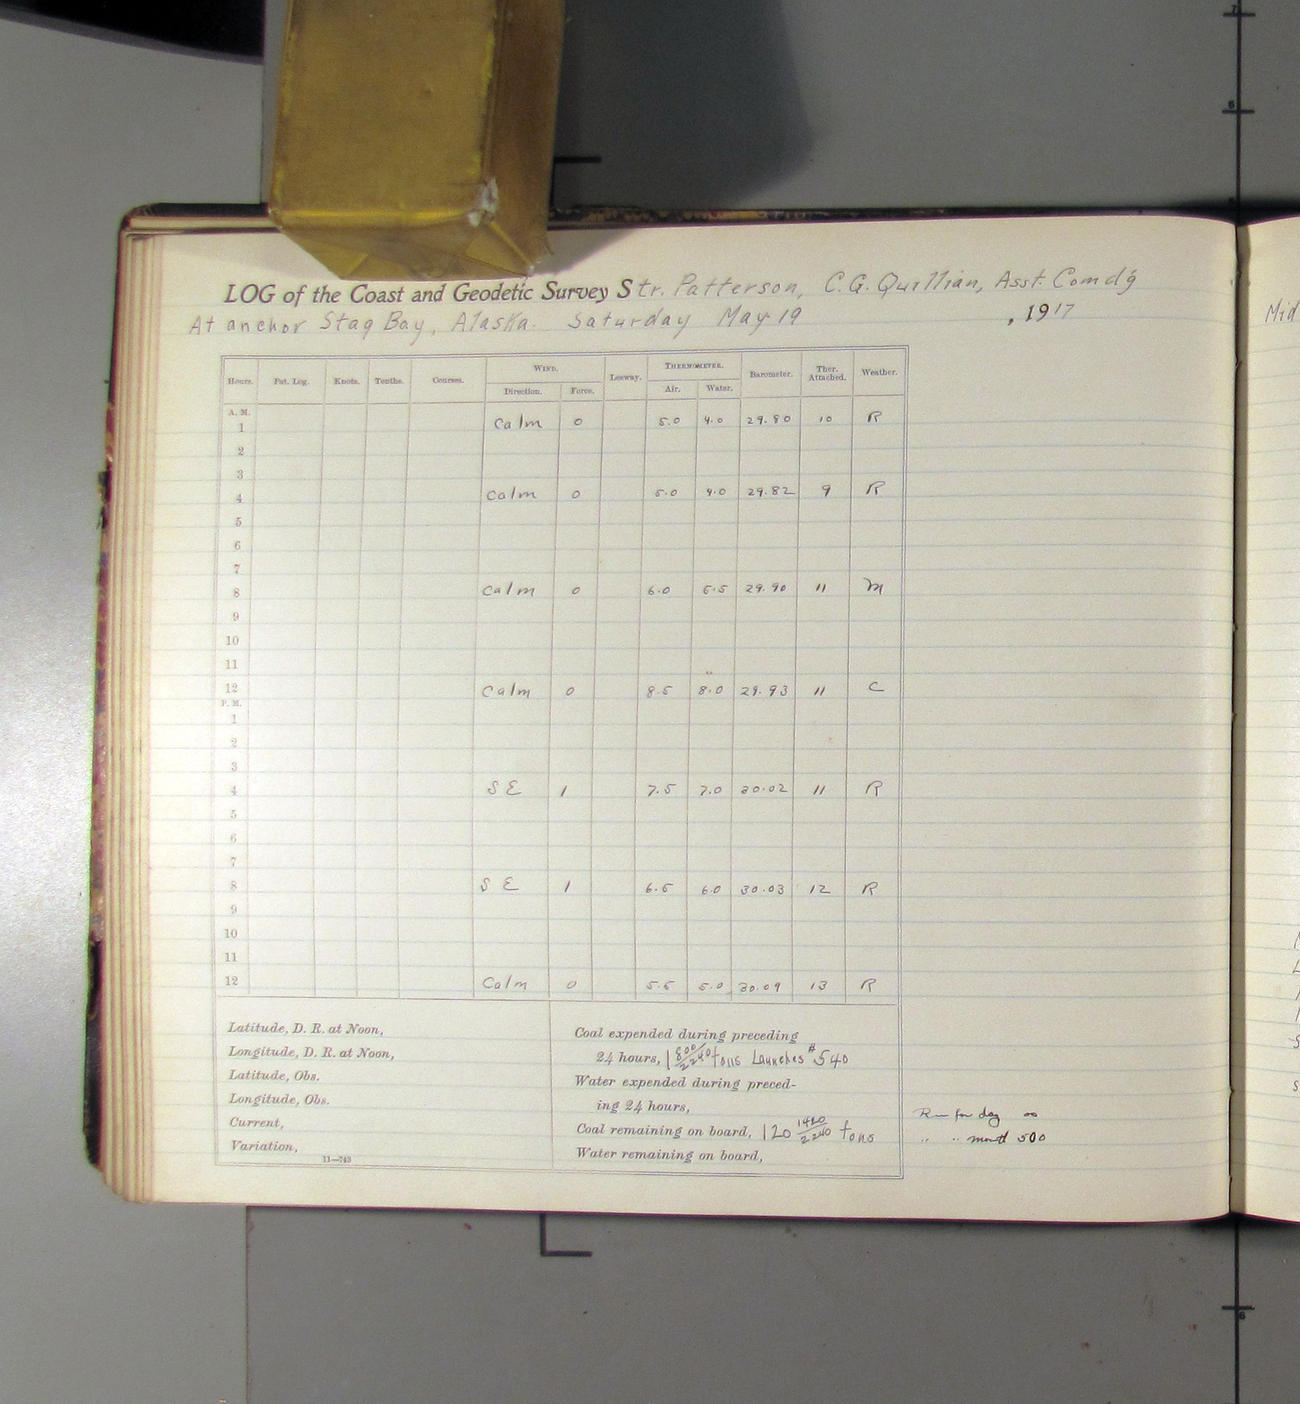 LOG of the Coast and Geodetic Survey Str. Patterson, C.G. Quillian, Asst. Comd'g
At anchor Stag Bay, Alaska. Saturday May 19, 1917
WIND. THERMOMETER.
Hours. Pat. Log. Knots. Tenths. Courses. Direction. Force. Leeway. Air. Water. Barometer. Ther. Attached. Weather.
A. M.
1 Calm 0 5.0 4.0 29.80 10 R
2
3
4 Calm 0 5.0 4.0 29.82 9 R
5
6
7
8 Calm 0 6.0 5.5 29.90 11 M
9
10
11
12 Calm 0 8.5 8.0 29.93 11 C
P. M.
1
2
3
4 SE 1 7.5 7.0 30.02 11 R
5
6
7
8 SE 1 6.5 6.0 30.03 12 R
9
10
11
12 Calm 0 5.5 5.0 30.09 13 R
Latitude, D. R. at Noon,
Longitude, D. R. at Noon,
Latitude, Obs.
Longitude, Obs.
Current,
Variation,
11—743
Coal expended during preceding
24 hours, 1 800/2240 tons Launches # 540
Water expended during preced-
ing 24 hours,
Coal remaining on board, 120 1480/2240 tons
Water remaining on board,
Run for day 00
" " month 500
Mid